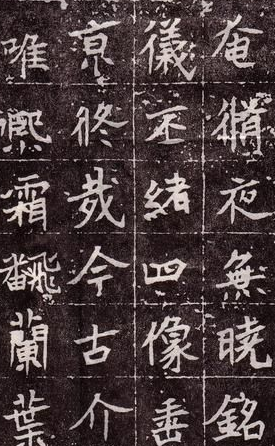 奄夜無曉銘
儀丕緒四像垂
哉今古介
唯霜飜蘭葉